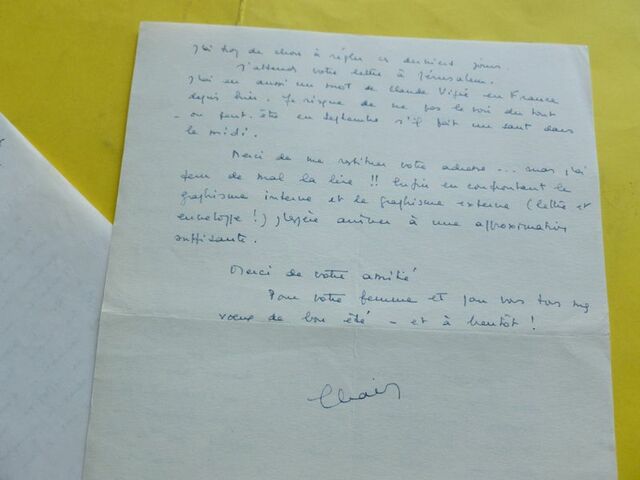 J'ai trop de choses à régler ces derniers jours
J'attends votre lettre à Jérusalem.
J'ai eu aussi un mot de Claude Vigée en France
depuis hier. Je risque de ne pas le voir du tout
- ou peut-être en septembre s'il fait un saut dans
le midi.
Merci de me restituer votre adresse... mais j'ai
peur de mal la lire !! Enfin en confrontant le
graphisme interne et le graphisme externe (lettre et
enveloppe !) j'espère arriver à une approximation
suffisante.
Merci de votre amitié
Pour votre femme et pour vous tous mes
vœux de bon été - et à bientôt !